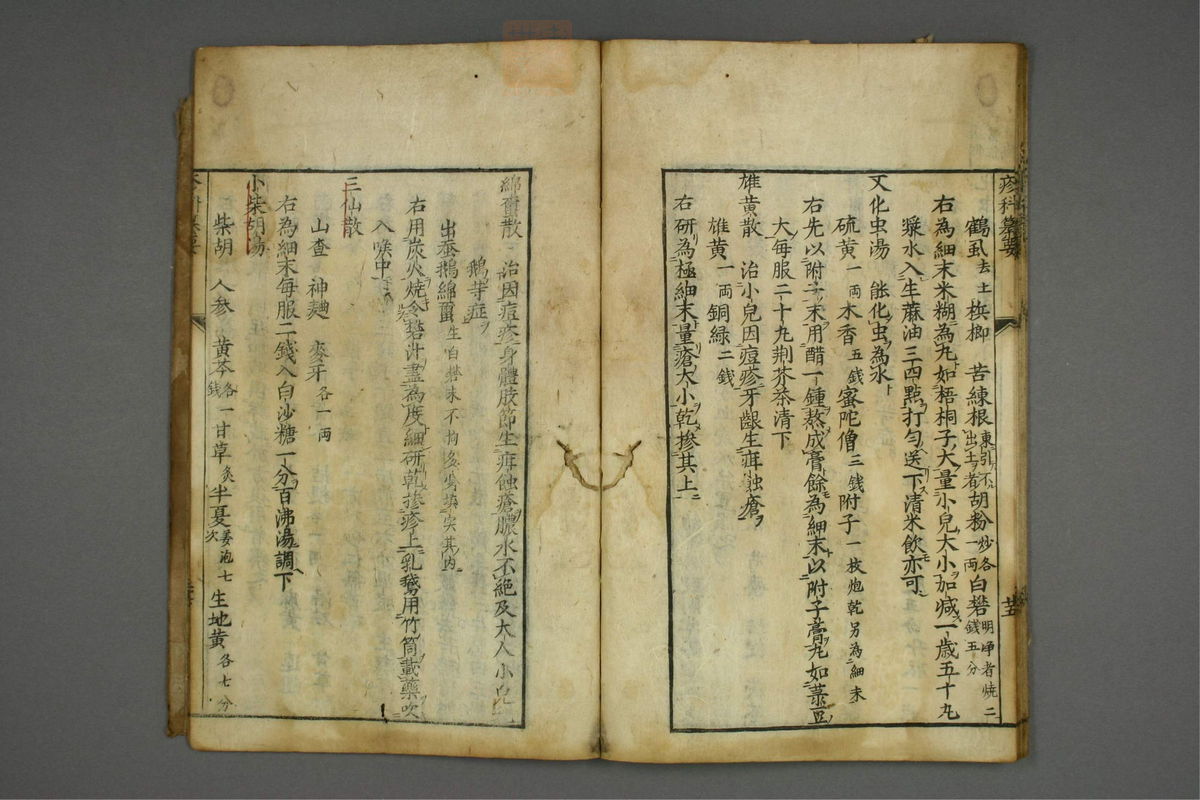 疹科纂要
廿五
鶴虱去土 梹榔 苦練根東引不出土者 胡粉炒各一両 白礬明净者焼二錢五分
右為細末米糊為丸如梧桐子大量小兒大小加减一歳五十丸
漿水入生蔴油三四點打匀送下清米飲亦可
又化虫湯 能化虫為水
硫黄一両 木香五錢 蜜陀僧三錢 附子一枚炮乾另為細末
右先以附子末用醋一鍾熬成膏餘為細末以附子膏丸如菉豆
大每服二十丸荆芥茶清下
雄黄散 治小兒因痘疹牙齦生疳蝕瘡
雄黄一両 銅緑二錢
右研為極細末量瘡大小乾摻其上
綿蠒散 治因痘疹身體肢節生疳蝕瘡膿水不絶及大人小兒乳
鵝等症
出蚕鵝綿蠒生白礬末不拘多少填实其内
右用炭火燒令礬汁盡為度細研乾摻疹上乳鵞用竹筒載藥吹
入喉中
三仙散
山查 神麯 麥牙各一両
右為細末每服二錢入白沙糖一分百沸湯調下
小柴胡湯
柴胡 人參 黄芩各一錢 甘草炙 半夏姜泡七次 生地黄各七分